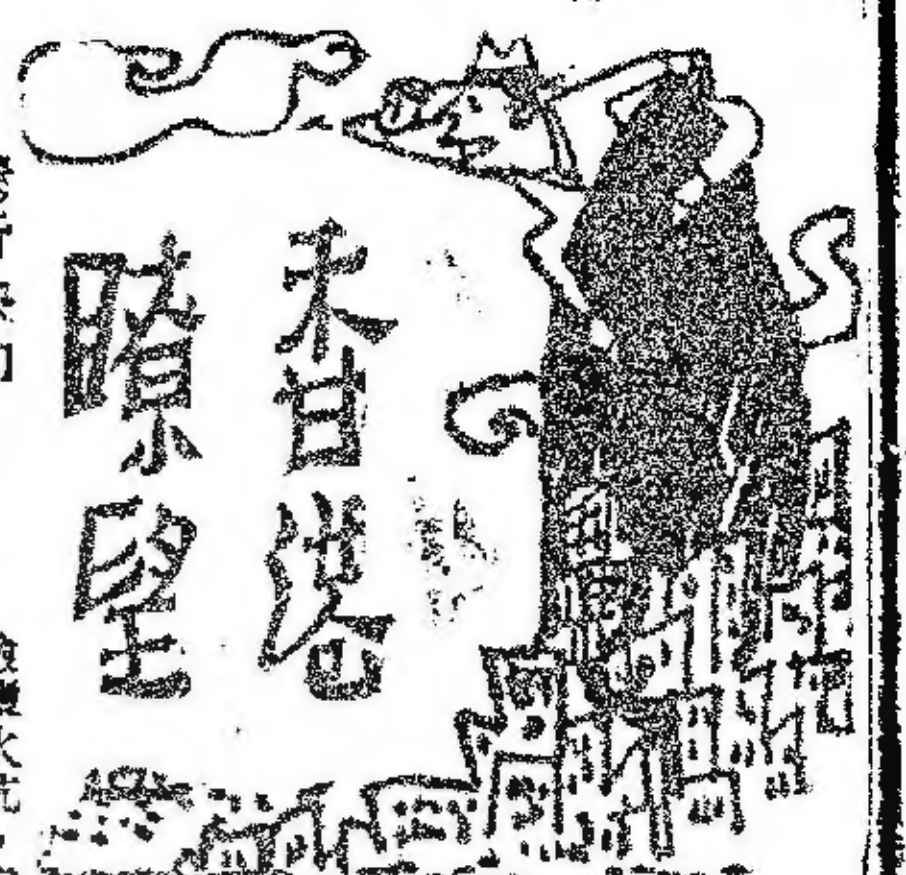 香港
瞭望